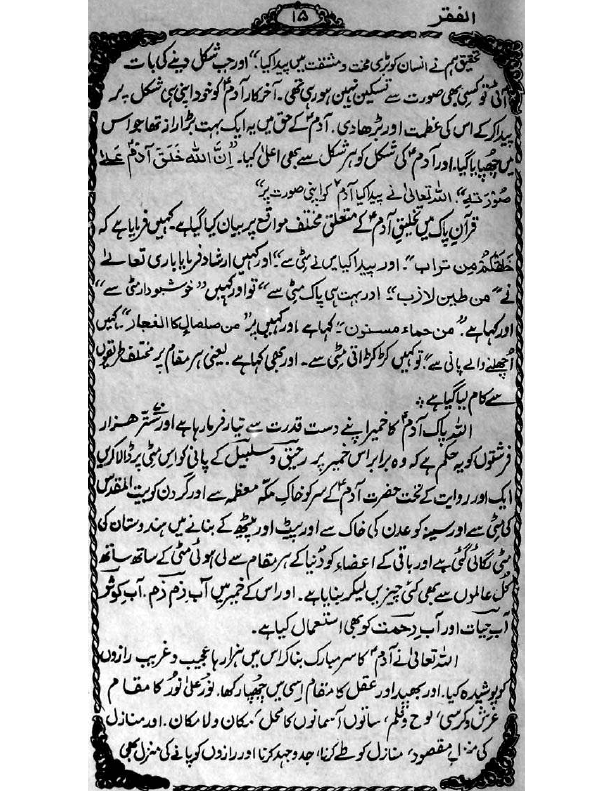 الفقر
۱۵
تحقیق ہم نے انسان کو بڑی محنت و مشقت میں پیدا کیا" اور جب شکل دینے کی بات
آئی تو کسی بھی صورت سے تسکین نہیں ہو رہی تھی۔ آخر کار آدمؑ کو خود اپنی ہی شکل پر
پیدا کر کے اس کی عظمت اور بڑھا دی۔ آدمؑ کے حق میں یہ ایک بہت بڑا راز تھا جو اس
میں چھپایا گیا۔ اور آدمؑ کی شکل کو ہر شکل سے بھی اعلیٰ کیا۔ "اِنَّ اللہ خَلَقَ آدَمَ عَلےٰ
صُوْرَتِہٖ"۔ اللہ تعالیٰ نے پیدا کیا آدمؑ کو اپنی صورت پر"
قرآن پاک میں تخلیق آدمؑ کے متعلق مختلف مواقع پر بیان کیا گیا ہے۔ کہیں فرمایا ہے کہ
خَلَقَكُمْ مِن تراب"۔ اور پیدا کیا میں نے مٹی سے" اور کہیں ارشاد فرمایا باری تعالےٰ
نے "من طین لازب" اور بہت ہی پاک مٹی سے" تو اور کہیں "خوشبودار مٹی سے"
اور کہا ہے۔ "من حماء مسنون"۔ کہا ہے اور کہیں پر "من صلصالٍ کا الفجار"۔ کہیں
اُچھلنے والے پانی سے" تو کہیں کڑکڑاتی مٹی سے۔ اور بھی کہا ہے۔ یعنی ہر مقام پر مختلف طریقوں
سے کام لیا گیا ہے۔
اللہ پاک آدمؑ کا خمیر اپنے دست قدرت سے تیار فرما رہا ہے اور ستّر ۷۰ ھزار
فرشتوں کو یہ حکم ہے کہ وہ برابر اس خمیر پر رحیق و سلسبیل کے پانی کو اس مٹی پر ڈالا کریں
ایک اور روایت کے تحت حضرت آدمؑ کے سر کو خاکِ مکّہ معظمہ سے اور گردن کو بیت المقدس
کی مٹی سے اور سینہ کو عدن کی خاک سے اور پیٹ اور پیٹھ کے بنانے میں ہندوستان کی
مٹی لگائی گئی ہے اور باقی کے اعضاء کو دُنیا کے ہر مقام سے لی ہوئی مٹی کے ساتھ ساتھ
کُل عالموں سے بھی کئی چیزیں لیکر بنایا ہے۔ اور اس کے خمیر میں آب زم زم۔ آب کوثر
آب حیات اور آب رحمت کو بھی استعمال کیا ہے۔
اللہ تعالیٰ نے آدمؑ کا سر مبارک بنا کر اس میں ہزار ہا عجیب و غریب رازوں
کو پوشیدہ کیا۔ اور بھید اور عقل کا مقام اِسی میں چھپا رکھا۔ نورٌ علیٰ نُورٌ کا مقام
عرش و کرسی، لوح و قلم، ساتوں آسمانوں کا محل، مکان و لا مکان۔ اور منازل
کی منزل مقصود، منازل کو طے کرنا، جدوجہد کرنا اور رازوں کو پانے کی منزل بھی